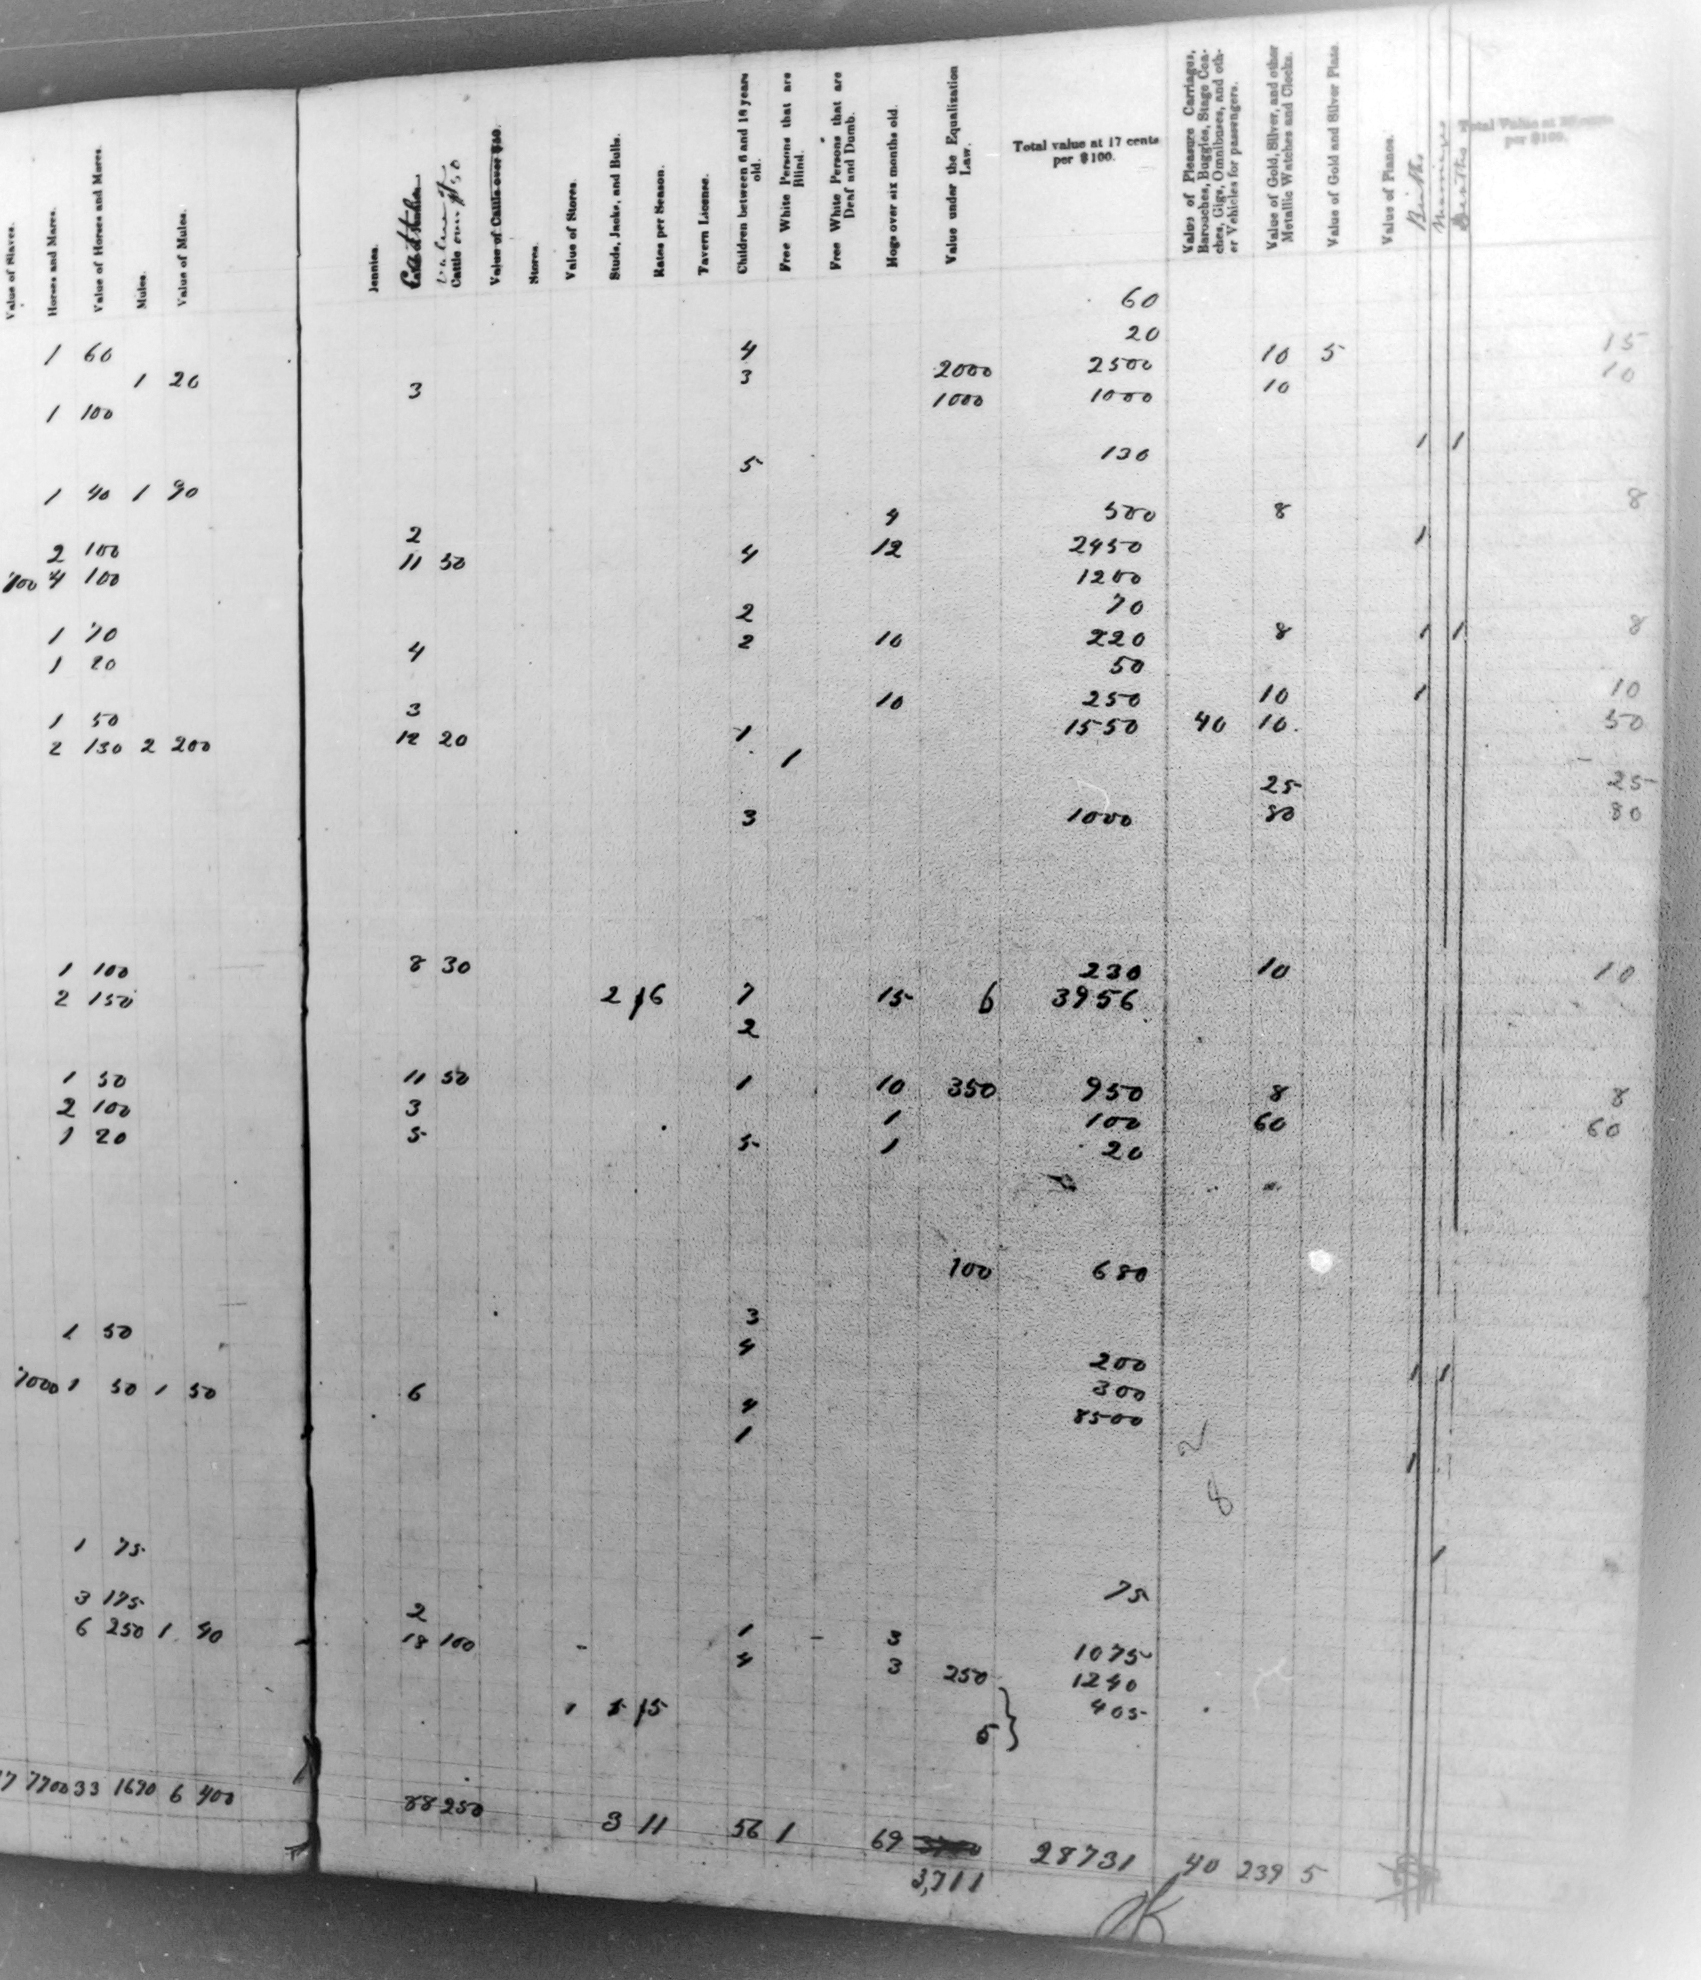 Value of Slaves. Horses and Mares. Value of Horses and Mares. Mules. Value of Mules. Jennies. Cattle Value of Cattle over $50 Value of Cattle over $50. Stores. Value of Stores. Studs, Jacks, and Bulls. Rates per Season. Tavern License. Children between 6 and 18 years old. Free White Persons that are Blind. Free White Persons that are Deaf and Dumb. Hogs over six months old. Value under the Equalization Law. Total value at 17 cents per $100. Value of Pleasure Carriages, Barouches, Buggies, Stage Coaches, Gigs, Omnibuses, and other Vehicles for passengers. Value of Gold, Silver, and other Metallic Watches and Clocks. Value of Gold and Silver Plate. Value of Pianos. Births Marriages Deaths Total Value at per $100.
60
1 60 4 20
1 20 3 3 2000 2500 10 5 15
1 100 1000 1000 10 10
1 1
1 40 1 90 5 130
2 100 2 4 500 8 8
700 4 100 11 50 4 12 2450 1
1200
1 70 2 70
1 20 4 2 10 220 8 1 1 8
50
1 50 3 10 250 10 1 10
2 130 2 200 12 20 1 1550 40 10 50
1
25 25
3 1000 80 80
1 100 8 30 230 10 10
2 150 2 16 7 15 6 3956
2
1 50 11 50 1 10 350 950 8 8
2 100 3 1 100 60 60
1 20 5 5 1 20
100 680
3
1 50 4 200 1 1
7000 1 50 1 50 6 4 300
1 8500
2
1
8
1 75 1
75
3 175 2
6 250 1 40 18 100 1 3 1075
4 3 250 1240
1 15 405
5
17 7700 33 1670 6 400 88 250 3 11 56 1 69 28731 40 239 5
3,711